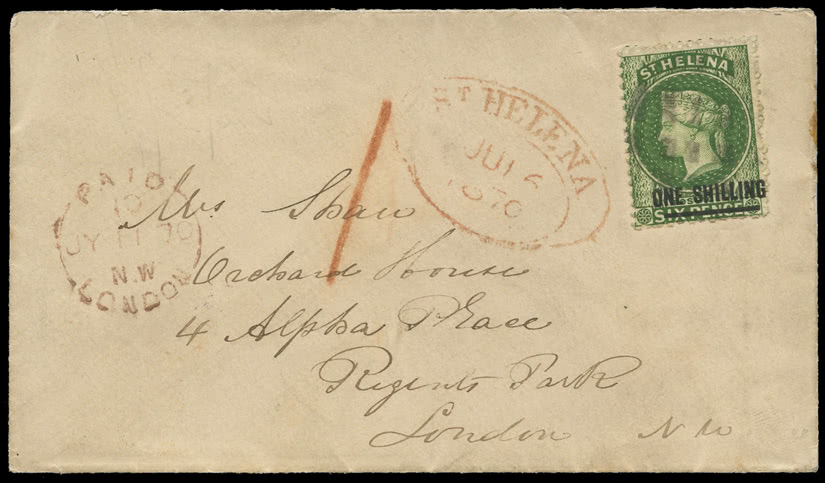 ST HELENA
ONE SHILLING
SIX PENCE
ST HELENA
JU 6
1870
PAID
10
JY 70
N.W
LONDON
1
Mrs Shaw
Orchard House
4 Alpha Place
Regents Park
London N W